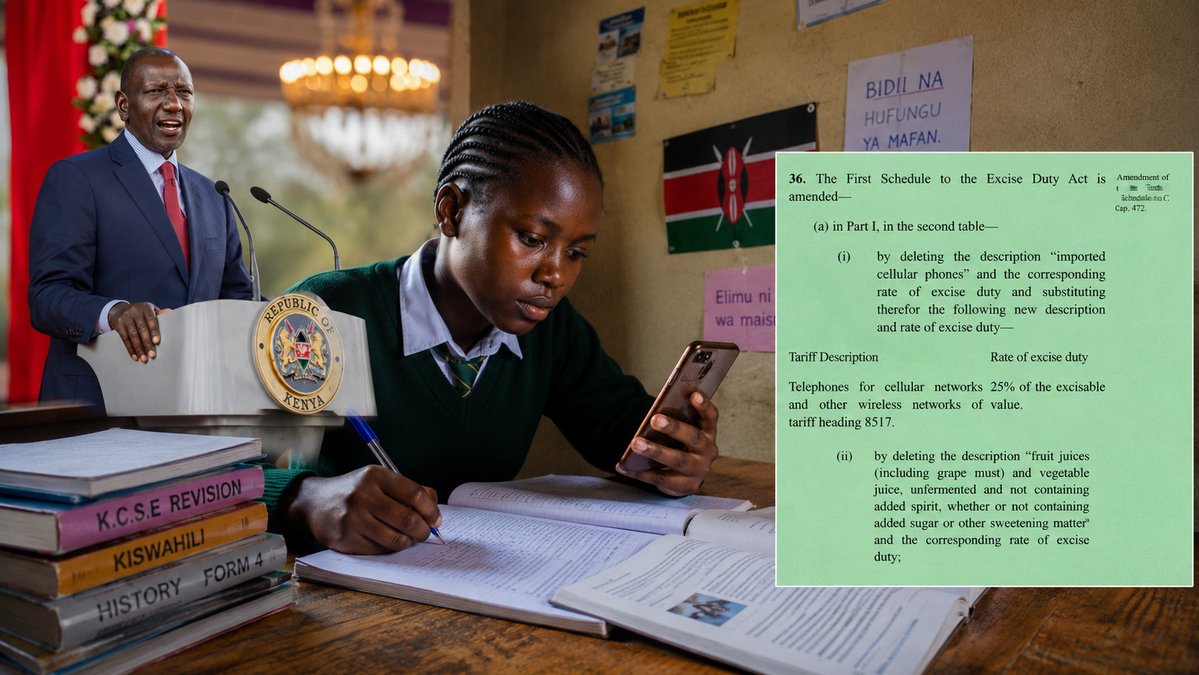 REPUBLIC OF
KENYA
K.C.S.E REVISION
KISWAHILI
HISTORY FORM 4
BIDII NA
HUFUNGU
YA MAFAN.
Elimu ni
wa mais
36. The First Schedule to the Excise Duty Act is
amended—
Amendment of
Cap. 472.
(a) in Part I, in the second table—
(i) by deleting the description “imported
cellular phones” and the corresponding
rate of excise duty and substituting
therefor the following new description
and rate of excise duty—
Tariff Description Rate of excise duty
Telephones for cellular networks 25% of the excisable
and other wireless networks of value.
tariff heading 8517.
(ii) by deleting the description “fruit juices
(including grape must) and vegetable
juice, unfermented and not containing
added spirit, whether or not containing
added sugar or other sweetening matter’
and the corresponding rate of excise
duty;